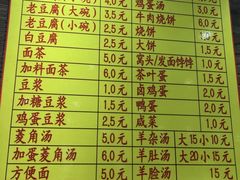 4.0元 鸡蛋汤 3.0元
老豆腐(大碗) 3.5元 牛肉烧饼 6.0元
老豆腐(小碗) 2.5元 烧饼 2.0元
白豆腐 2.5元 大饼 1.5元
面茶 5.0元 窝头/发面饽饽 1.0元
加料面茶 6.0元 茶叶蛋 1.5元
豆浆 1.0元 卤鸡蛋 1.5元
加糖豆浆 1.5元 鸭蛋 2.0元
鸡蛋豆浆 2.5元 咸菜 1.0元
菱角汤 5.0元 羊杂汤 大15小10元
加蛋菱角汤 6.0元 羊肚汤 大20小15元
方便面 5.0元 羊脸汤 15元